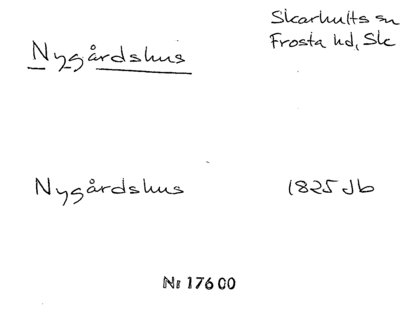 Nygårdshus
Skarhults sn
Frosta hd, Sk
Nygårdshus
1825 Jb
Nr 17600